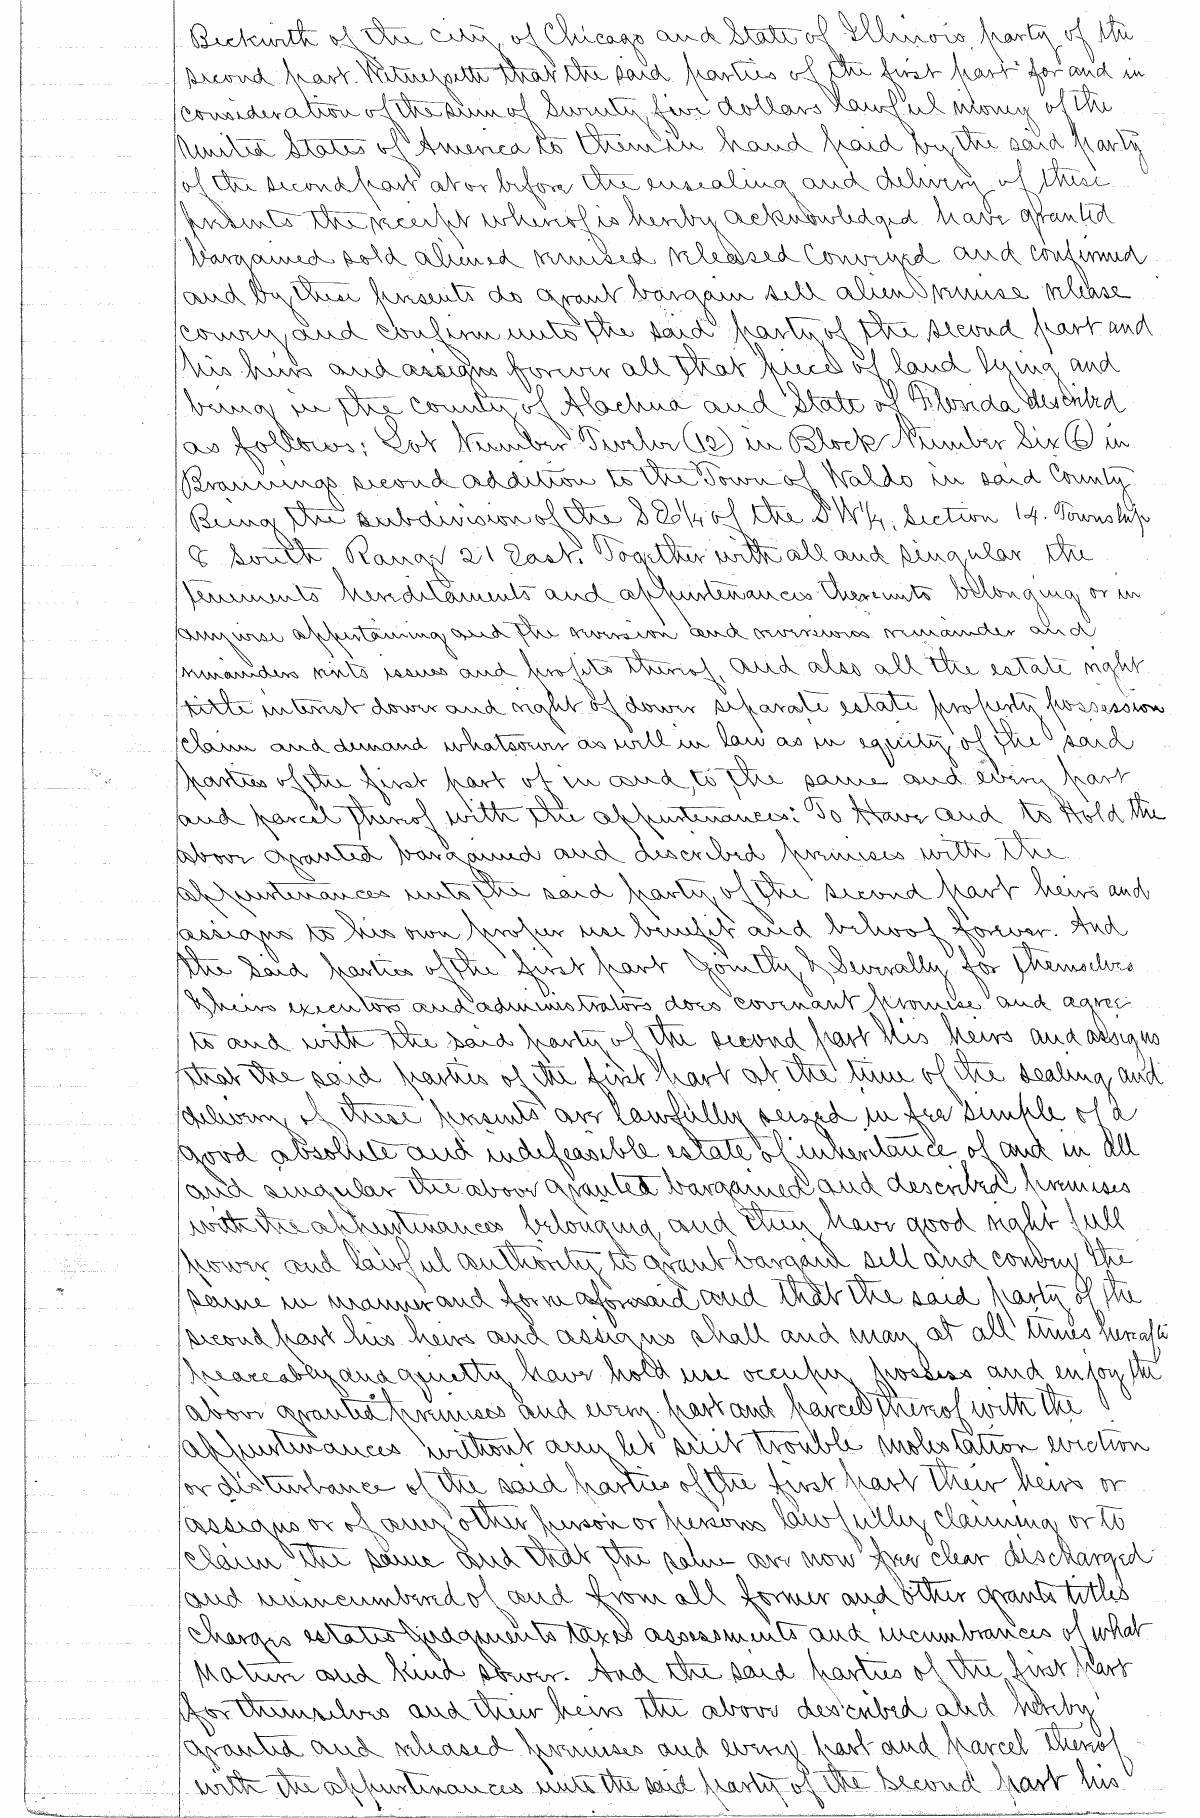 Beckwith of the city of Chicago and State of Illinois party of the
second part. Witnesseth that the said parties of the first part for and in
consideration of the sum of Twenty five dollars lawful money of the
United States of America to them in hand paid by the said party
of the second part at or before the ensealing and delivery of these
presents the receipt whereof is hereby acknowledged have granted
bargained sold aliened remised released conveyed and confirmed
and by these presents do grant bargain sell alien remise release
convey and confirm unto the said party of the second part and
his heirs and assigns forever all that piece of land lying and
being in the county of Alachua and State of Florida described
as follows; Lot Number Twelve (12) in Block Number Six (6) in
Brannings second addition to the Town of Waldo in said County
Being the subdivision of the SE 1/4 of the SW 1/4, Section 14. Township
8 South Range 21 East. Together with all and singular the
tenements hereditaments and appurtenances thereunto belonging or in
anywise appertaining and the reversion and reversions remainder and
remainders rents issues and profits thereof, and also all the estate right
title interest dower and right of dower separate estate property possession
claim and demand whatsoever as well in law as in equity of the said
parties of the first part of in and to the same and every part
and parcel thereof with the appurtenances: To Have and to Hold the
above granted bargained and described premises with the
appurtenances unto the said party of the second part heirs and
assigns to his own proper use benefit and behoof forever. And
the said parties of the first part Jointly & Severally for themselves
& heirs executors and administrators does covenant promise and agree
to and with the said party of the second part his heirs and assigns
that the said parties of the first part at the time of the sealing and
delivery of these presents are lawfully seized in fee simple of a
good absolute and indefeasible estate of inheritance of and in all
and singular the above granted bargained and described premises
with the appurtenances belonging and they have good right full
power and lawful authority to grant bargain sell and convey the
same in manner and form aforesaid and that the said party of the
second part his heirs and assigns shall and may at all times hereafte
peaceably and quietly have hold use occupy possess and enjoy the
above granted premises and every part and parcel thereof with the
appurtenances without any let suit trouble molestation eviction
or disturbance of the said parties of the first part their heirs or
assigns or of any other person or persons lawfully claiming or to
claim the same and that the same are now free clear discharged
and unincumbered of and from all former and other grants titles
charges estates judgments taxes assessments and incumbrances of what
Nature and kind soever. And the said parties of the first part
for themselves and their heirs the above described and hereby
granted and released premises and every part and parcel thereof
with the appurtenances unto the said party of the second part his